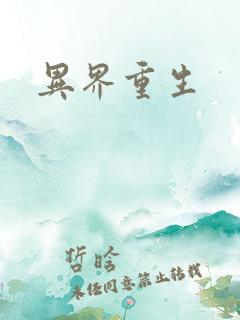 異界重生
哲晗
未经同意禁止转载